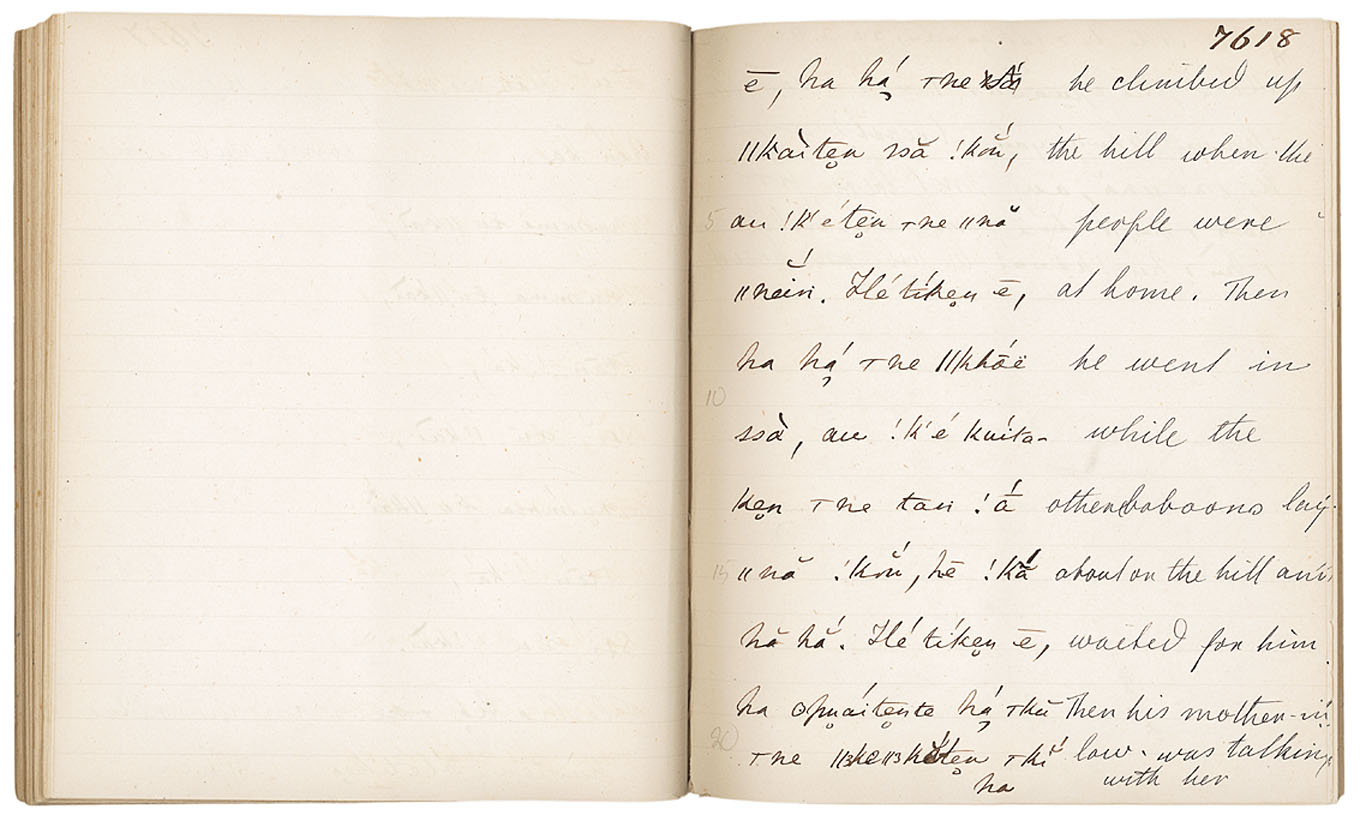 7618
ē, ha há̧ ꞇne he climbed up
ǁkàitẹn ssă !kŏ́ŭ, the hill when the
5 au !k'étẹn ꞇne ǁnă people were
ǁnĕ́iń. Hé tíkẹn ē, at home. Then
ha há̧ ꞇne ǁkhóë he went in
10
ssà, au !k'é kuíta- while the
kẹn ꞇne taŭ !ā́ other baboons lay
15 ǁnă !kŏ́ŭ, hē !kā̆́ about on the hill and
hă há. Hé tíkẹn ē, waited for him.
ha ʘpuáitẹnte há̧ ꞇkŭ Then his mother-in
20
ꞇne ꞇkĭ́ law was talking
ha with her